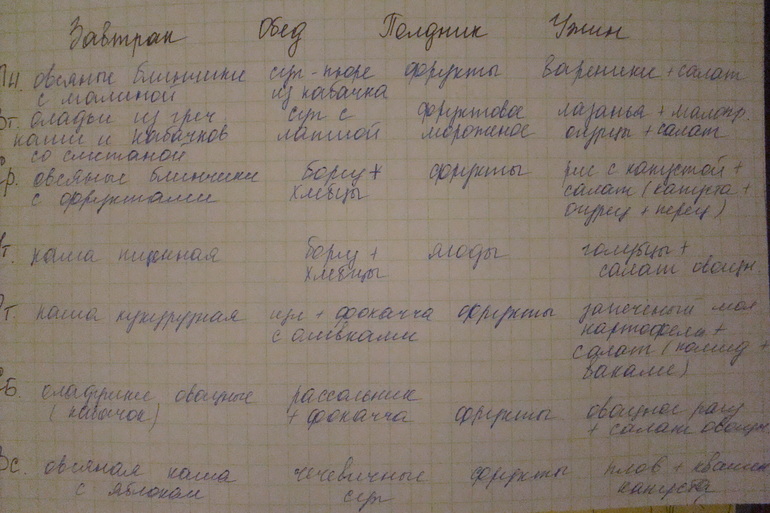 Завтрак Обед Полдник Ужин
Пн. овсяные блинчики суп-пюре фрукты вареники + салат
с малиной из кабачка
Вт. оладьи из греч. суп с фруктовое лазанья + малопр.
каши и кабачков лапшой мороженое огурцы + салат
со сметаной
Ср. овсяные блинчики борщ + фрукты рис с капустой +
с фруктами хлебцы салат (капуста +
огурец + перец)
Чт. каша пшенная борщ + ягоды голубцы +
хлебцы салат овощн.
Пт. каша кукурузная суп + фокачча фрукты запеченый мол.
с оливками картофель +
салат (помид +
вакаме)
Сб. оладушки овощные рассольник овощное рагу
(кабачок) + фокачча фрукты + салат овощн.
Вс. овсяная каша чечевичные фрукты плов + квашен.
с яблоком суп капуста